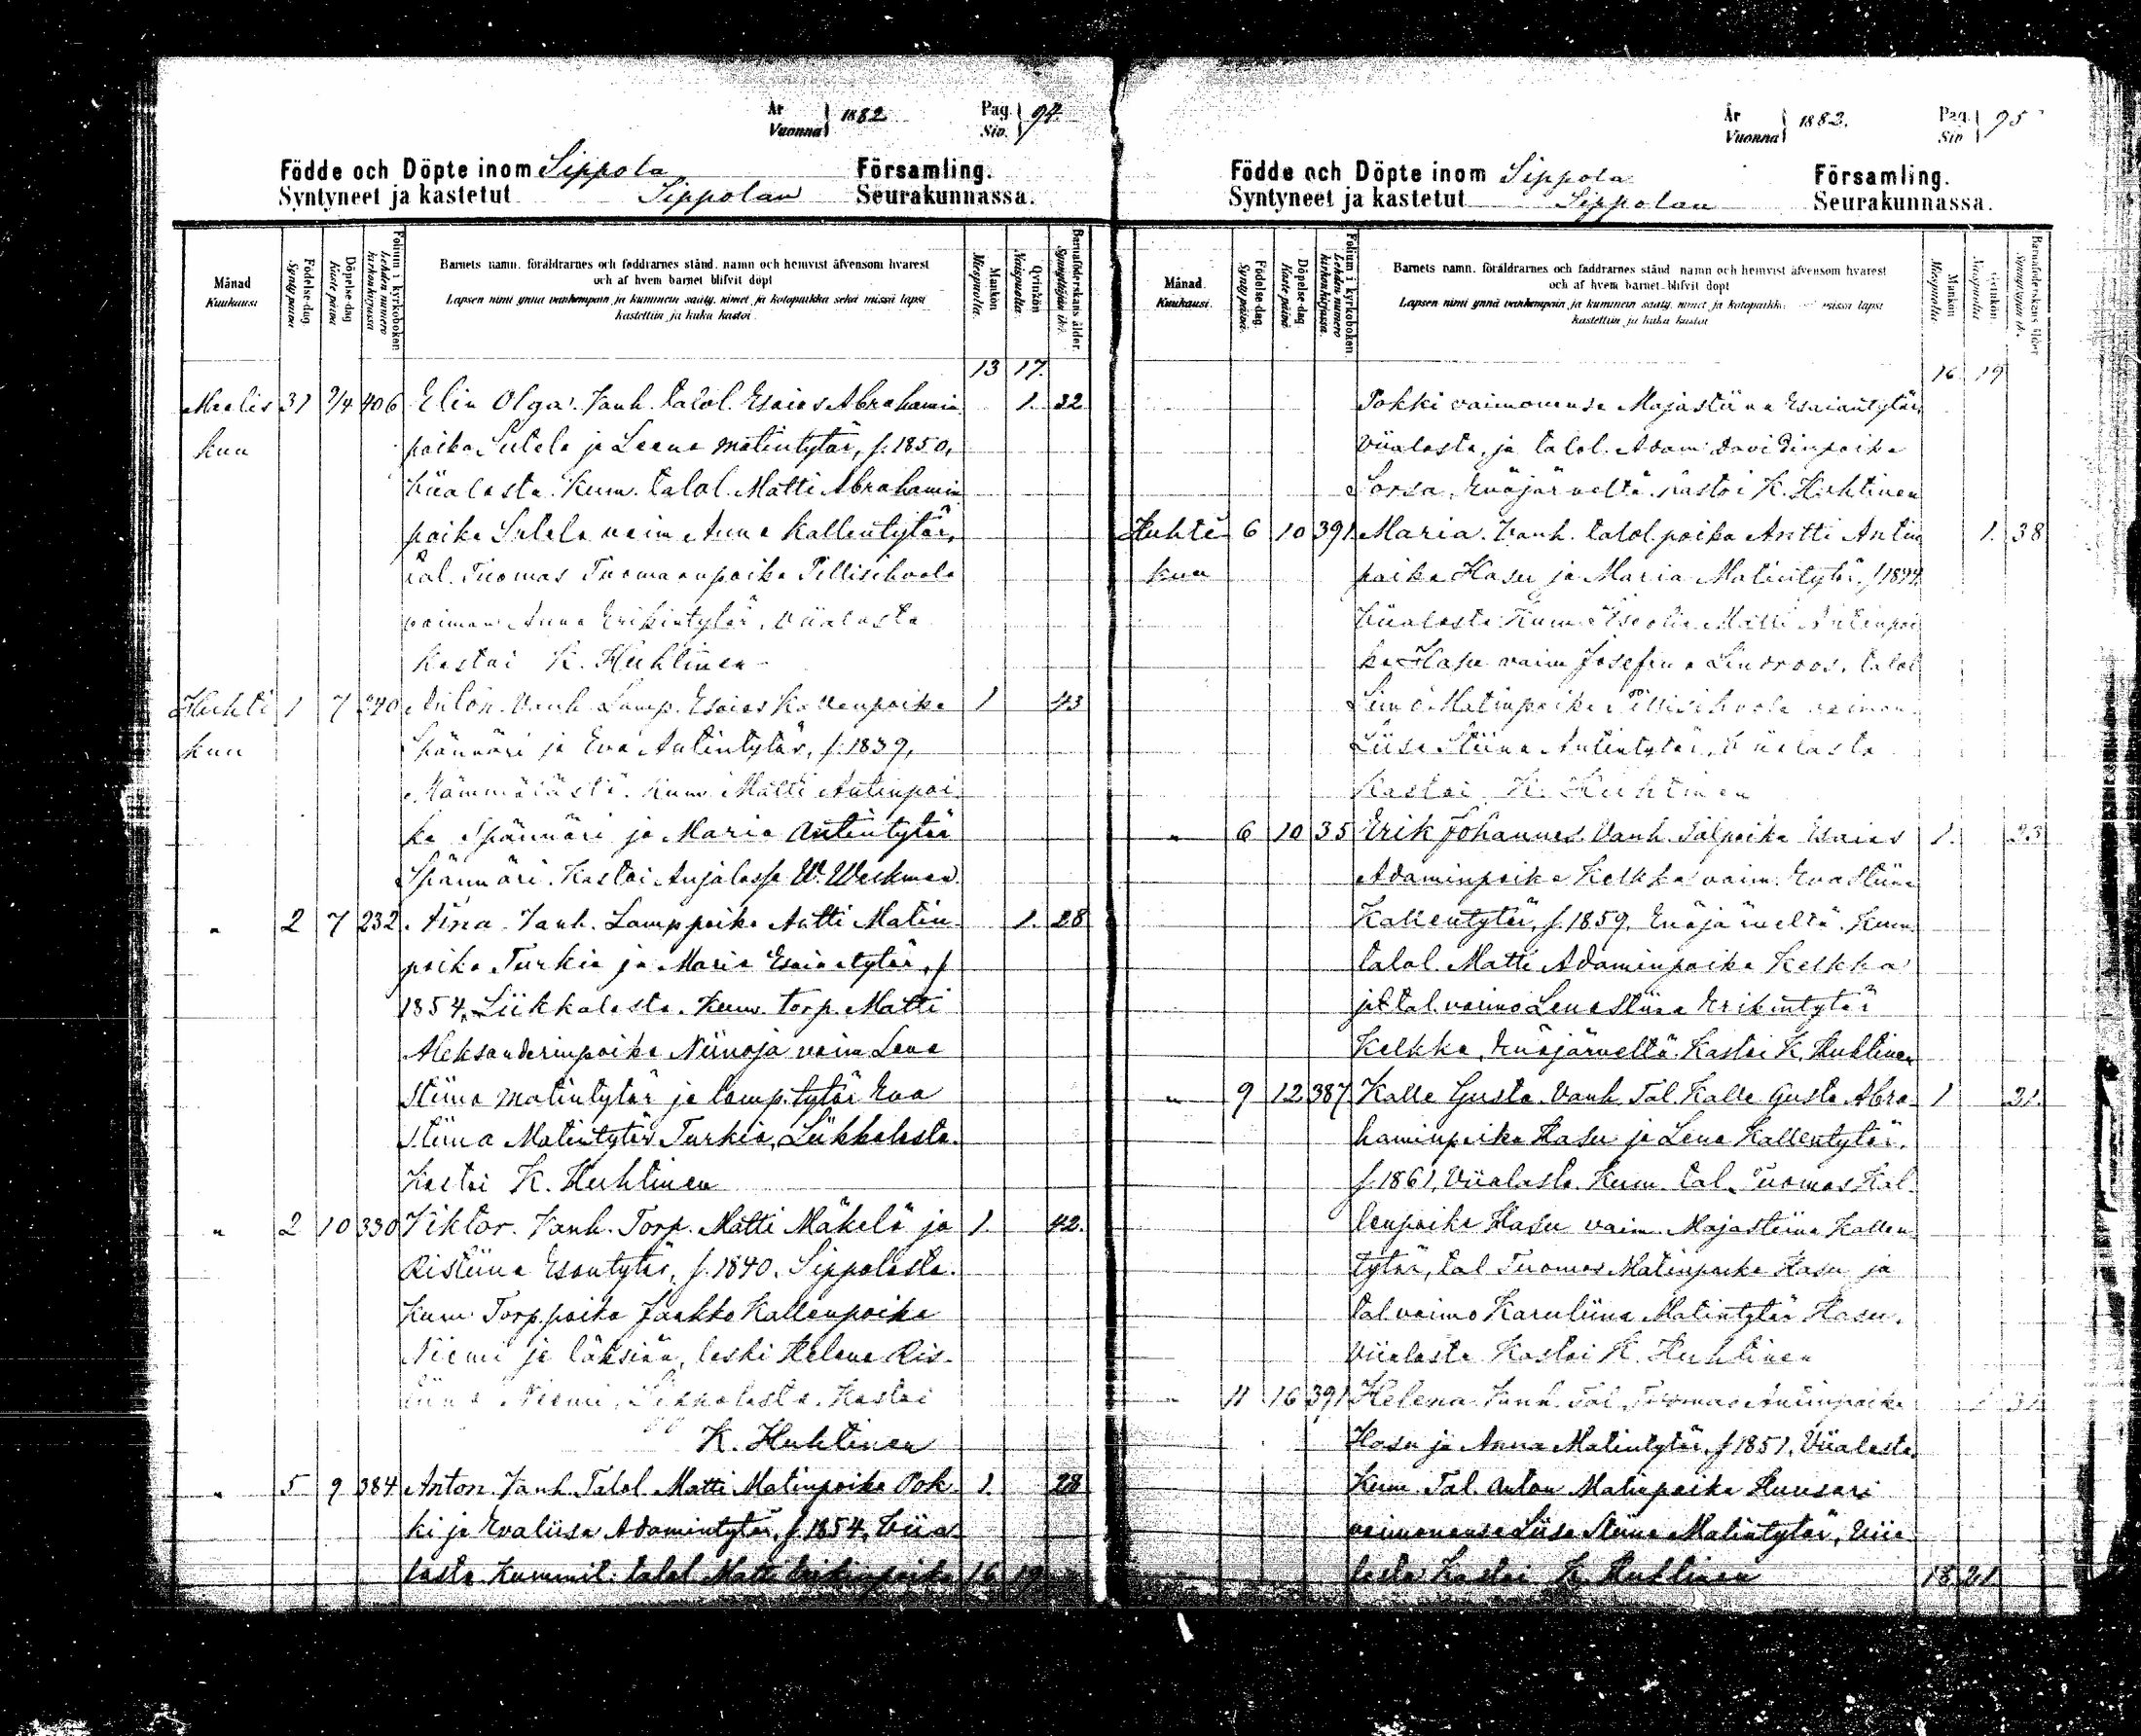 År
Vuonna
1882
Pag.
Siv.
94
Födde och Döpte inom Sippola Församling.
Syntyneet ja kastetut Sippolan Seurakunnassa.
Månad
Kuukausi
Födelse-dag
Synty päivä
Döpelse-dag
Kaste päivä
Folium i kyrkoboken
Lehden numero kirkonkirjassa
Barnets namn, föräldrarnes och faddrarnes stånd, namn och hemvist äfvensom hvarest
och af hvem barnet blifvit döpt
Lapsen nimi ynnä vanhempain ja kummein sääty, nimet ja kotopaikka sekä missä lapsi
kastettiin ja kuka kastoi
Mankön
Miespuolia
Qvinkön
Naispuolia
Barnaföderskans ålder.
Synnyttäjän ikä.
13 17.
Maalis 31 2/4 406 Elin Olga. Vanh. talol. Esaias Abrahamin 1. 32
kuu poika Sutela ja Leena Matintytär, s. 1850,
Viialasta. Kum. talol. Matti Abrahamin
poika Sutela vaim Anna Kallentytär,
tal. Tuomas Tuomaanpoika Pillisihvola
vaimon Anna Erikintytär, Viialasta
Kastoi K. Huhtinen
Huhti 1 7 240 Anton. Vanh. Lamp. Esaias 1 43
kuu Spännäri ja Eva Antintytär, s. 1839,
Mämmälästä. Kum. Matti Antinpoi
ka Spännäri ja Maria Antintytär
Spännäri. Kastoi Anjalassa W. Weckman.
" 2 7 232 Aina. Vanh. Lamp poika Antti Matin 1. 28
poika Turkia ja Maria Esaiatytär, s
1854, Liikkalasta. Kum. torp. Matti
Aleksanderinpoika Niinoja vaim Lena
Stiina Matintytär ja lamp. tytär Eva
Stiina Matintytär Turkia, Liikkalasta.
Kastoi K. Huhtinen
" 2 10 330 Viktor. Vanh. Torp. Matti Mäkelä ja 1. 42.
Ristiina Esantytär, s. 1840. Sippolasta.
Kum. Torp. poika Jaakko Kallenpoika
Niemi ja leski Helena Ris-
tiina Niemi, Sippolasta. Kastoi
K. Huhtinen
" 5 9 384 Anton. Vanh. Talol. Matti Matinpoika Pok- 1. 28
ki ja Evaliisa Adamintytär, s. 1854, Viia-
lasta. Kummit: talol Matti Erikinpoika 16 19
År
Vuonna
1882.
Pag.
Siv
95
Födde och Döpte inom Sippola Församling.
Syntyneet ja kastetut Sippolan Seurakunnassa.
Månad
Kuukausi.
Födelse-dag.
Synty päivä.
Döpelse-dag.
Kaste päivä
Folium i kyrkoboken
Lehden numero kirkonkirjassa.
Barnets namn, föräldrarnes och faddrarnes stånd namn och hemvist äfvensom hvarest
och af hvem barnet blifvit döpt
Lapsen nimi ynnä vanhempain ja kummein sääty, nimet ja kotopaikka missä lapsi
kastettiin ja kuka kastoi
Mankön
Miespuolia
Qvinkön
Naispuolia
Barnaföderskans ålder
16 19
Pokki vaimonensa Majastiina Esaiantytär,
Viialasta, ja talol. Adam Davidinpoika
Sorsa, Enäjärveltä. Kastoi K. Huhtinen
Huhti 6 10 391 Maria. Vanh. talol. poika Antti Antin 1. 38
kuu poika Hasu ja Maria Matintytär, s 1844,
Viialasta. Kum. Matti Antinpoi
ka Hasu vaim Josefina Lindroos, talol
Matinpoika Pillisihvola vaimon
Liisa Stiina Antintytär, Viialasta
Kastoi K. Huhtinen
" 6 10 35 Erik Johannes. Vanh. Tal poika Esaias 1. 23
Adaminpoika Kelkka vaim. Eva Stiina
Kallentytär, s. 1859, Enäjärveltä. Kum.
talol. Matti Adaminpoika Kelkka
tal. vaimo Lena Stiina Erikintytär
Kelkka, Enäjärveltä. Kastoi K. Huhtinen
" 9 12 387 Kalle Gusta. Vanh. Tal. Kalle Gusta Abra- 1 21.
haminpoika Hasu ja Lena Kallentytär,
s. 1861, Viialasta. Kum. tal. Tuomas Kal-
lenpoika Hasu vaim. Majastiina Kallen
tytär, tal Tuomas Matinpoika Hasu ja
tal. vaimo Karuliina Matintytär Hasu,
Viialasta. Kastoi K. Huhtinen
" 11 16 391 Helena. Vanh. Tal. Tuomas Antinpoika 1 31
Hasu ja Anna Matintytär, s 1851, Viialasta.
Kum. Tal. Anton Matinpoika Huusari
vaimonensa Liisa Stiina Matintytär, Viia-
lasta. Kastoi K. Huhtinen 18 21